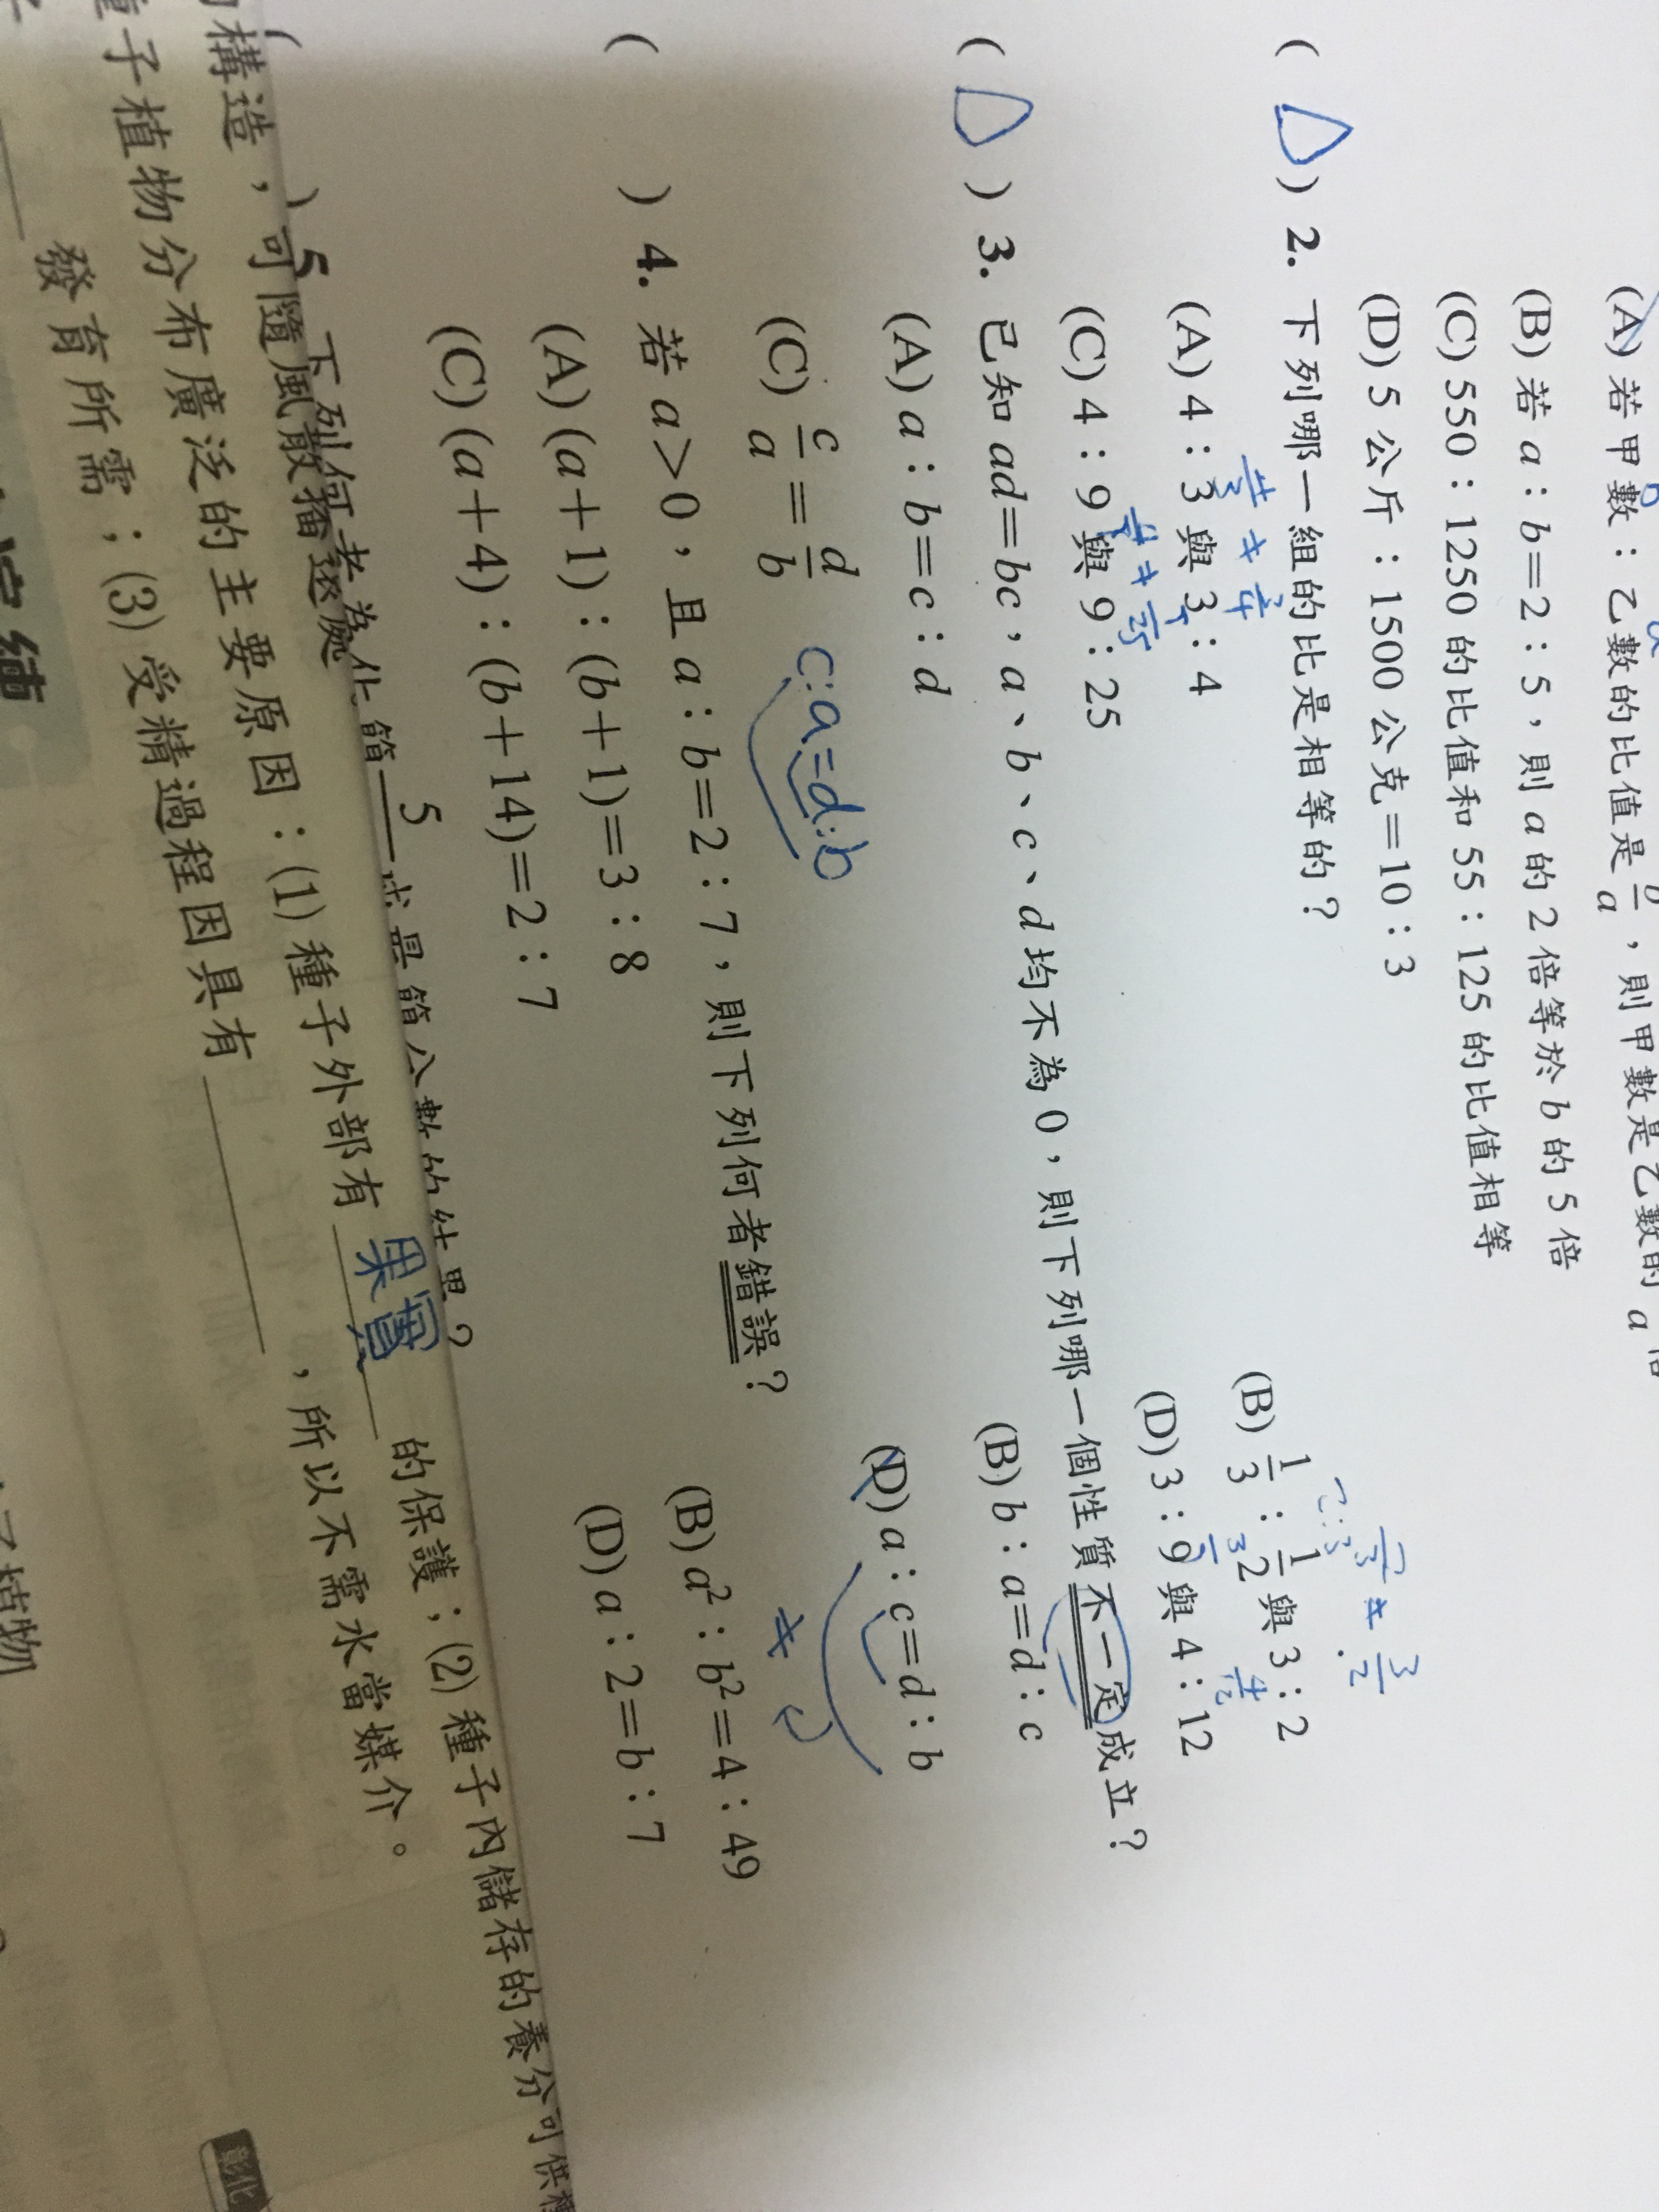 (A) 若甲數：乙數的比值是 b/a，則甲數是乙數的 a 倍
(B) 若 a：b＝2：5，則 a 的 2 倍等於 b 的 5 倍
(C) 550：1250 的比值和 55：125 的比值相等
(D) 5 公斤：1500 公克＝10：3
( D ) 2. 下列哪一組的比是相等的？
(A) 4：3 與 3：4 (B) 1/3：1/2 與 3：2
4/3 ≠ 3/4
(C) 4：9 與 9：25 (D) 3：9 與 4：12
( D ) 3. 已知 ad＝bc，a、b、c、d 均不為 0，則下列哪一個性質不一定成立？
(A) a：b＝c：d (B) b：a＝d：c
(C) c/a＝d/b (D) a：c＝d：b
c:a=d:b
( ) 4. 若 a＞0，且 a：b＝2：7，則下列何者錯誤？
(A) (a＋1)：(b＋1)＝3：8 (B) a²：b²＝4：49
(C) (a＋4)：(b＋14)＝2：7 (D) a：2＝b：7
( ) 5 下列何者為化簡 5 成最簡分數的結果？
構造，可隨風散播遠處
種子植物分布廣泛的主要原因：(1) 種子外部有 果實 的保護；(2) 種子內儲存的養分可供種
發育所需；(3) 受精過程因具有 ，所以不需水當媒介。